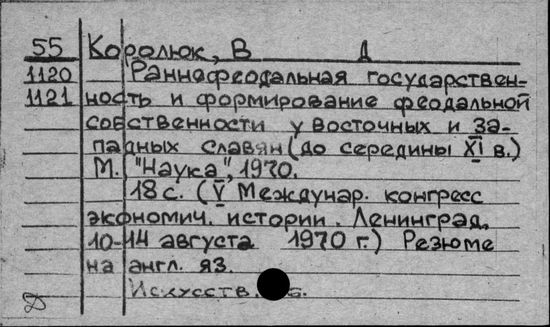 55 Королюк, В Д
1120 Раннефеодальная государствен-
1121 ность и формирование феодальной
собственности у восточных и за-
падных славян (до середины XI в.)
М. "Наука", 1970.
18 с. (V Междунар. конгресс
экономич. истории. Ленинград,
10-14 августа 1970 г.) Резюме
на англ. яз.
Искусств.